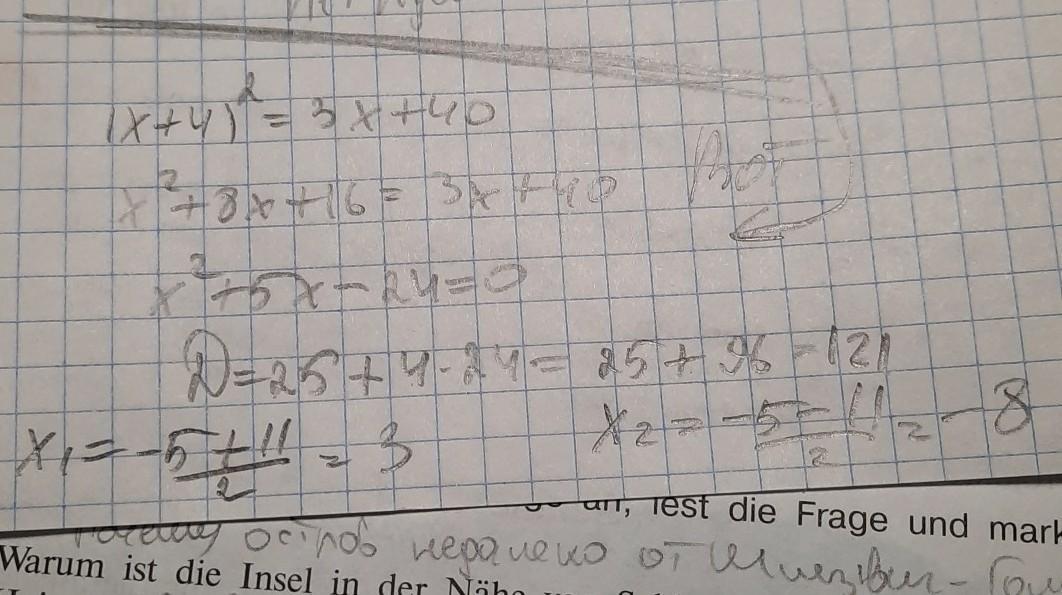 (x+4)² = 3x+40
x²+8x+16 = 3x+40
Вот
x²+5x-24=0
D=25+4·24= 25+96=121
x₁ = -5+11/2 = 3
x₂ = -5-11/2 = -8
an, lest die Frage und mark
почему остров недалеко от
Warum ist die Insel in der Nähe